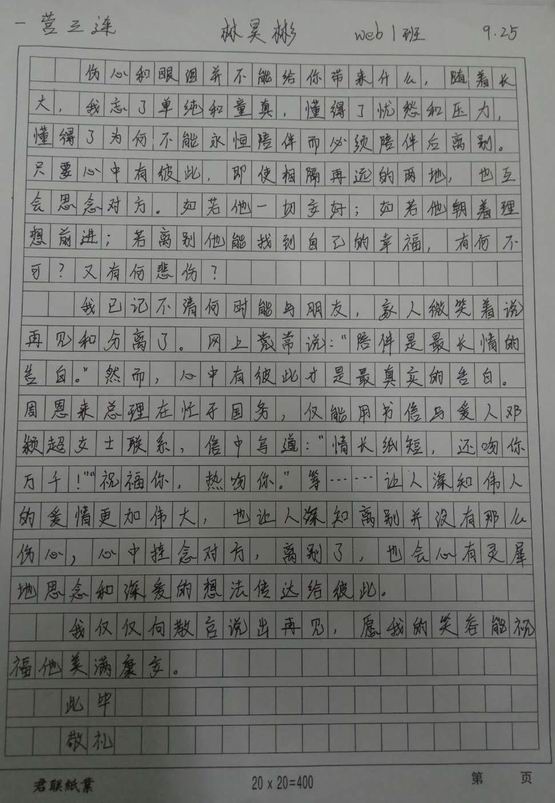 一营三连 林昊彬 web1班 9.25
伤心和眼泪并不能给你带来什么，随着长
大，我忘了单纯和童真，懂得了忧愁和压力，
懂得了为何不能永恒陪伴而必须陪伴后离别。
只要心中有彼此，即使相隔再远的两地，也互
会思念对方。如若他一切安好；如若他朝着理
想前进；若离别他能找到自己的幸福，有何不
可？又有何悲伤？
我已记不清何时能与朋友，家人微笑着说
再见和分离了。网上常常说：“陪伴是最长情的
告白。”然而，心中有彼此才是最真实的告白。
周恩来总理在忙于国务，仅能用书信与爱人邓
颖超女士联系，信中写道：“情长纸短，还吻你
万千！”“祝福你，热吻你。”等……让人深知伟人
的爱情更加伟大，也让人深知离别并没有那么
伤心，心中挂念对方，离别了，也会心有灵犀
地思念和深爱的想法传达给彼此。
我仅仅向散言说出再见，愿我的笑容能祝
福他美满康安。
此毕
敬礼
君联纸业 20×20=400 第 页